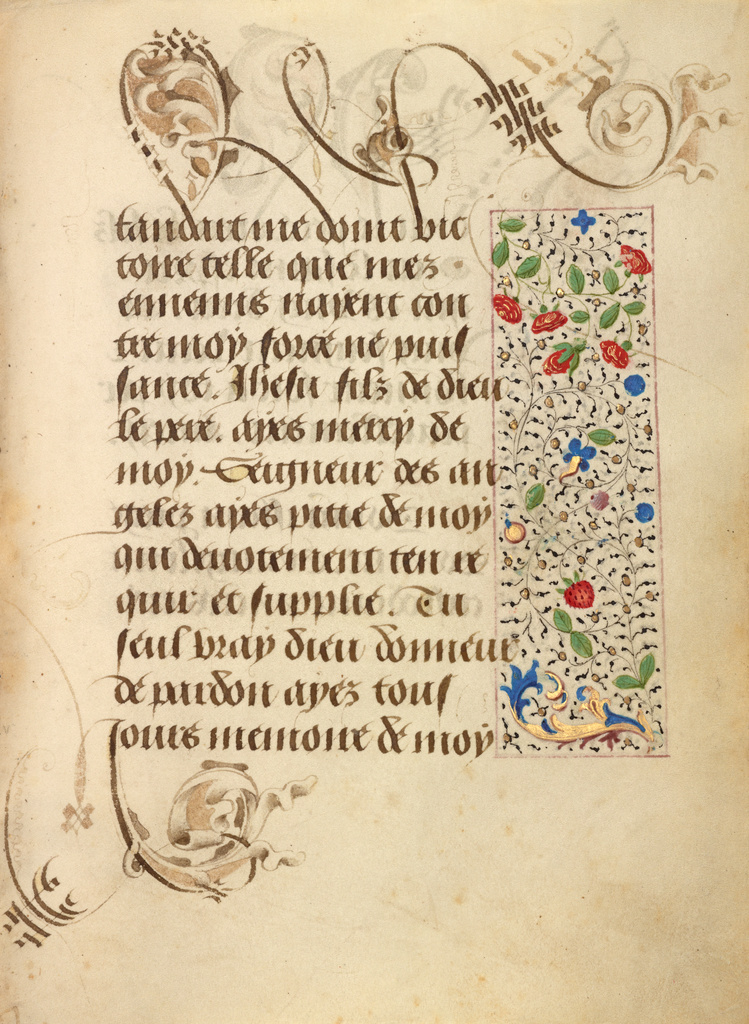 tandart me doint vic
toire telle que mez
ennemis naient con
tre moy force ne puis
sance. Jhesu filz de dieu
le pere. ayes mercy de
moy. Seigneur des an
gelez ayes pitie de moy
qui deuotement ten re
quir et supplie. Tu
seul vray dieu donneur
de pardon ayez tous
jours memoire de moy